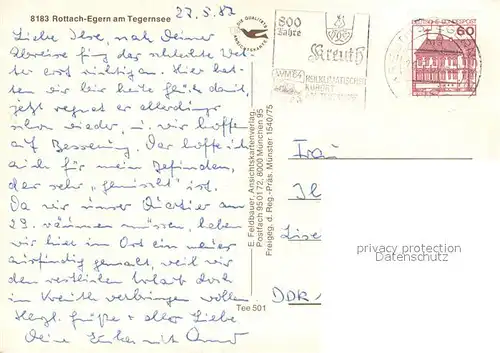 8183 Rottach-Egern am Tegernsee
27.5.87
Liebe Ilse, nach Deiner
Abreise fing das schlechte Wet-
ter erst richtig an. Hier hat-
ten wir bis heute Glück damit,
jetzt regnet es allerdings
schon wieder, u. wir hoffen
auf Besserung. Das hoffe ich
auch für mein Befinden,
das sehr „gemischt" ist.
Da wir unser Quartier am
29. räumen müssen, haben
wir hier im Ort ein neues
ausfindig gemacht, weil wir
den restlichen Urlaub doch
in Kreuth verbringen wollen
Herzl. Grüße + alles Liebe
Deine
DIE QUALITÄTS
ANSICHTSKARTEN
E. Feldbauer, Ansichtskartenverlag,
Postfach 95 01 72, 8000 München 95
Freigeg. d. Reg.-Präs. Münster 1540/75
Tee 501
800
Jahre
Kreuth
HEILKLIMATISCHER
KURORT
DEUTSCHE BUNDESPOST
60
Frau
Ilse
DDR
privacy protection
Datenschutz